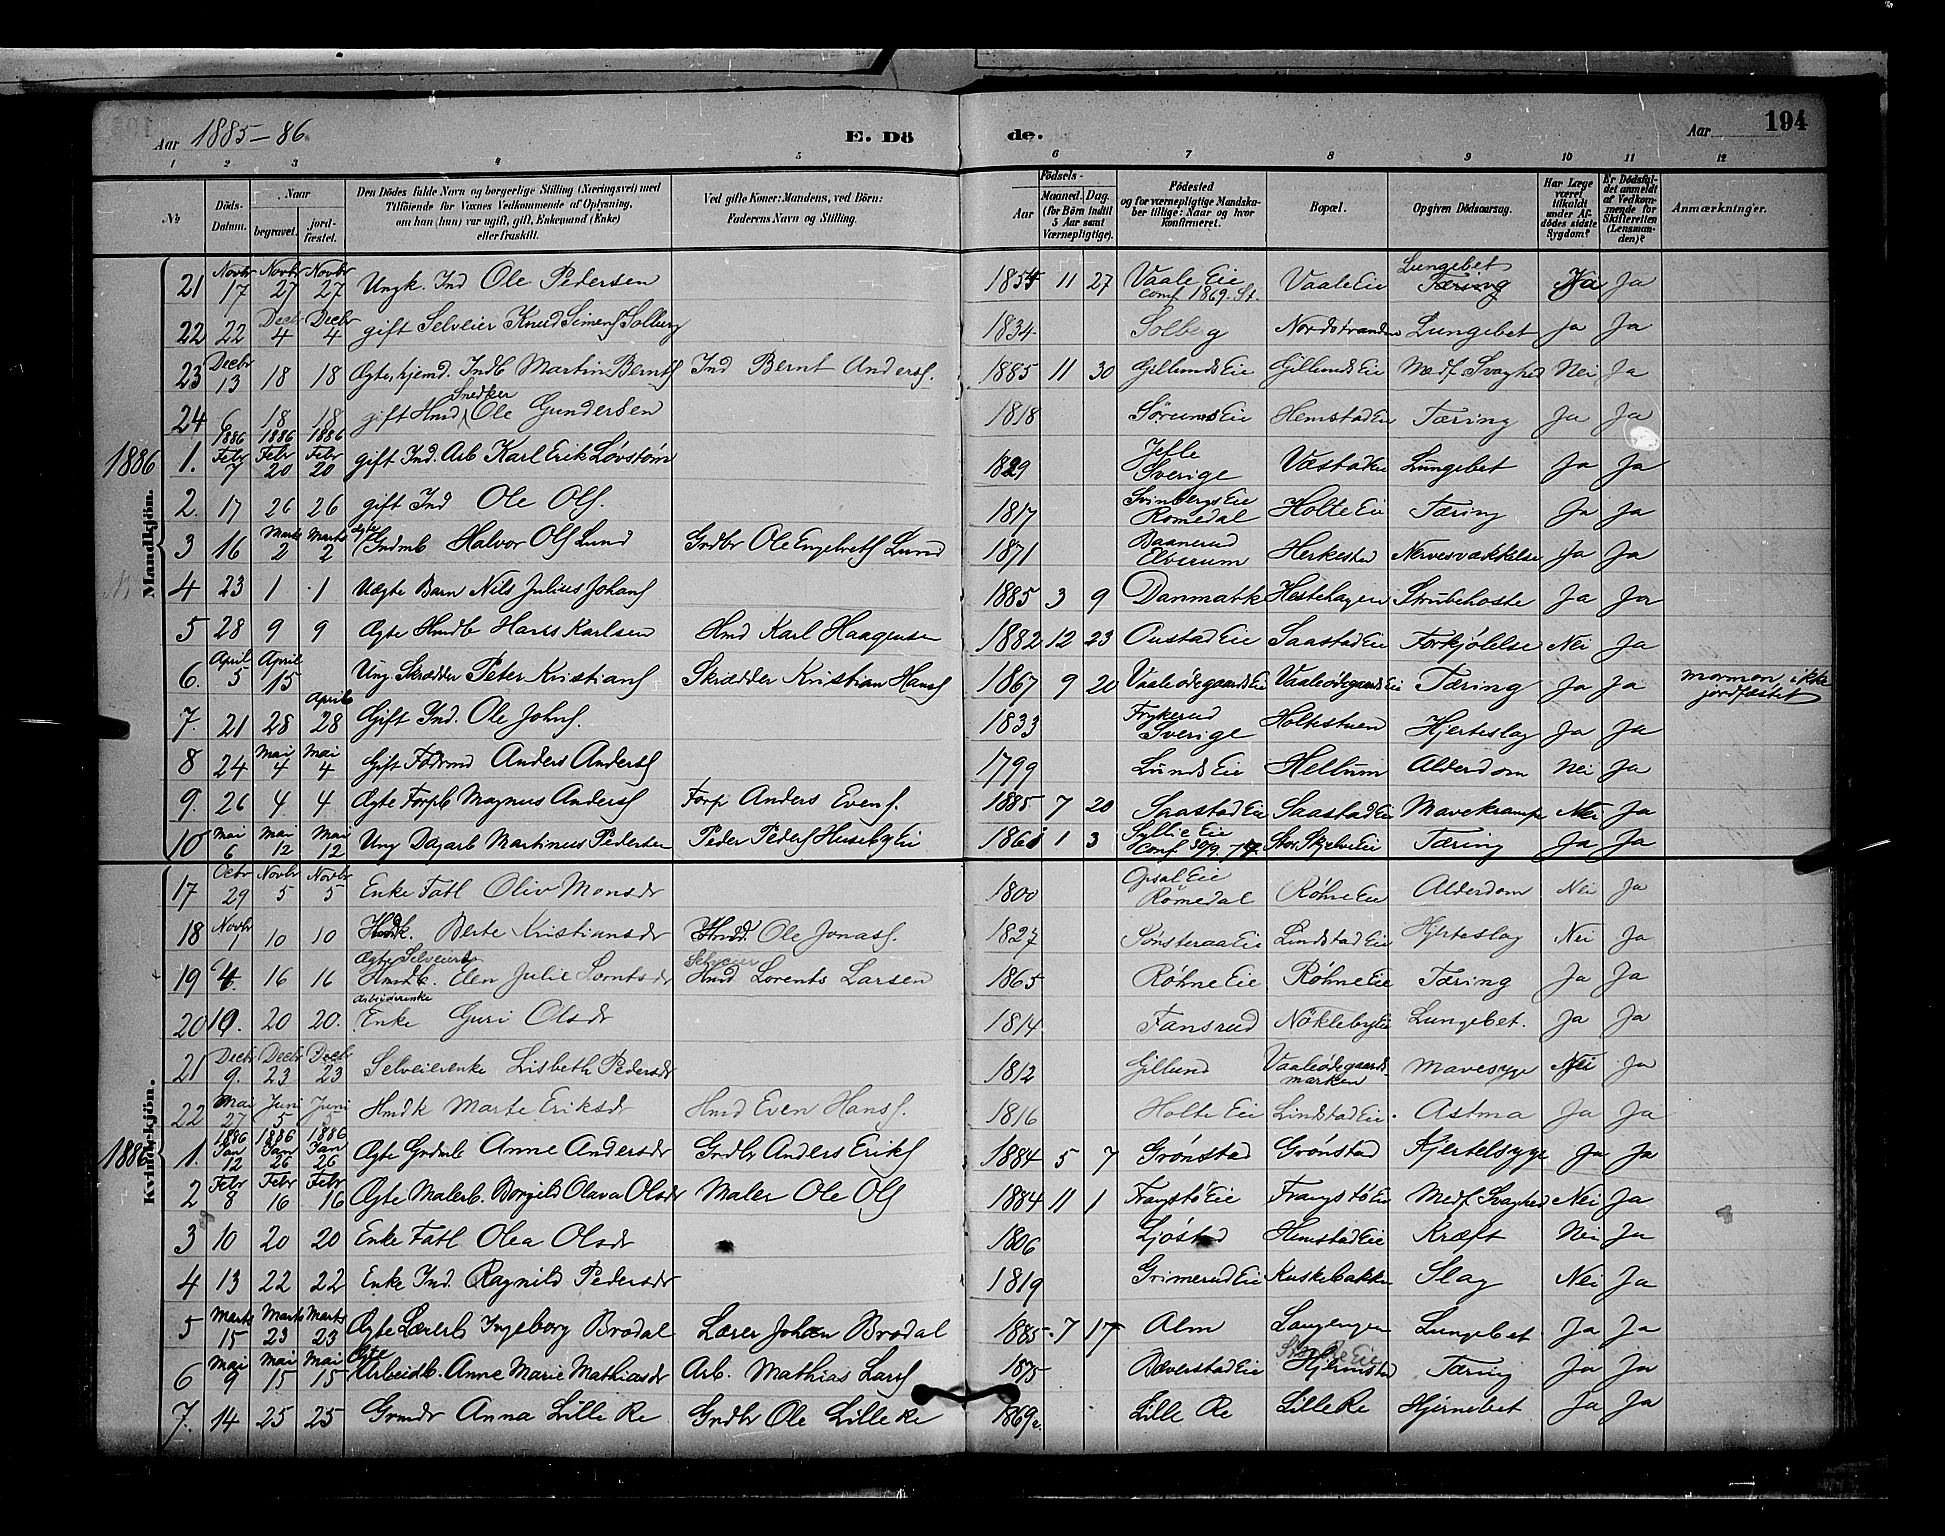 Aar 1885–86. E. Dö de. Aar 194
1 2 3 4 5 6 7 8 9 10 11 12
No
Döds-Datum.
Naar begravet. jordfæstet.
Den Dödes fulde Navn og borgerlige Stilling (Næringsvei) med Tilföiende for Voxnes Vedkommende af Oplysning, om han (hun) var ugift, gift, Enkemand (Enke) eller fraskilt.
Ved gifte Koner: Mandens, ved Börn: Faderens Navn og Stilling.
Födsels-
Aar Maaned. Dag. (for Börn indtil 5 Aar samt Værnepligtige).
Födested og for værnepligtige Mandskaber tillige: Naar og hvor konfirmeret.
Bopæl.
Opgiven Dödsaarsag.
Har Læge været tilkaldt under Afdödes sidste Sygdom?
Er Dödsfaldet anmeldt af Vedkommende for Skifteretten (Lensmanden)?
Anmærkninger.
Mandkjön.
21 Novbr 17 Novbr 27 Novbr 27 Ungk. Ind Ole Pedersen 1854 11 27 Vaale Eie conf 1869. St. Vaale Eie Lungebet Tæring Ja Ja
22 22 Decbr 4 Decbr 4 gift Selveier Knud Simens Solberg 1834 Solberg Nordstranden Lungebet Ja Ja
23 Decbr 13 18 18 Ægte, hjemd. Indb Martin Bernts Ind Bernt Anders. 1885 11 30 Gillunds Eie Gillunds Eie Medf. Svaghed Nei Ja
24 6 18 18 gift Hmd Snedker Ole Gundersen 1818 Sörums Eie Hemstad Ei Tæring Ja Ja
1886 1. 1886 Febr 7 1886 Febr 20 1886 Febr 20 gift Ind. Arb Karl Erik Løvstøm 1829 Jefle Sverige Væstad Lungebet Ja Ja
2. 17 26 26 gift Ind Ole Ols. 1817 Svinbergs Eie Romedal Holte Eie Tæring Ja Ja
3 16 Marts 2 Marts 2 ægte Grdmb Halvor Ols Lund Grdbr Ole Engelvets Lund 1871 Baanerud Elverum Herkestad Nervesvækkelse Ja Ja
4 23 1 1 Uægte Barn Nils Julius Johans 1885 3 9 Danmark Hestehagen Strubehoste Ja Ja
5 28 9 9 Ægte Hmdb Hans Karlsen Hmd Karl Haagensen 1882 12 23 Onstad Eie Saastad Eie Forkjølelse Nei Ja
6. April 5 April 15 Ung. Skrædder Peter Kristians Skrædder Kristian Hans 1867 9 20 Vaaleødegaards Ei Vaaleødegaards Ei Tæring Ja Ja mormon, ikke jordfæstet
7. 21 28 April 28 Gift Ind. Ole Johns. 1833 Frykerud Sverige Holtestuen Hjerteslag Ja Ja
8 24 Mai 4 Mai 4 Gift Födrmd Anders Anders 1799 Lunds Eie Hellum Alderdom Nei Ja
9. 26 4. 4 Ægte Forpb Magnus Anders Forp Anders Evens. 1885 7 20 Saastad Eie Saastad Eie Mavekrampe Nei Ja
10 Mai 6 Mai 12 Mai 12 Ung Dagarb Martinus Pedersen Peder Peders Huseby Ei 1861 1 3 Syllie Eie Conf. 30/9. 77. Stor. Skjelve Eie Tæring Ja Ja
Kvindekjön.
17 Octbr 29 Novbr 5 Novbr 5 Enke Fatl Oliv Monsdr 1800 Opsal Eie Romedal Røhne Eie Alderdom Nei Ja
18 Novbr 1 10 10 Hmdk. Berte Kristiansdr Hmd. Ole Jonas. 1827 Sønsteraa Eie Lindstad Eie Hjerteslag Nei Ja
19 4. 16 16 Ægte Selveierb Hmdb. Elen Julie Lorntsdr Selveier Hmd Lorents Larsen 1865 Røhne Eie Røhne Eie Tæring Ja Ja
20 19. 20 20. Arbeiderenke Enke Guri Olsdr 1814 Fansrud Nökleby Ei Lungebet. Ja Ja
21 Decbr 9. Decbr 23 Decbr 23 Selveierenke Lisbeth Pedersdr 1812 Gillund Vaaleødegaardsmarken Mavesyge Nei Ja
22 Mai 27 Juni 5 Juni 5 Hmdk Marte Eriksdr Hmd Even Hans. 1816 Holte Eie Lindstad Eie. Astma Ja Ja
1886 1. 1886 Jan 12 1886 Jan 26 1886 Jan 26 Ægte Grdmb Anne Andersdr Grdbr Anders Eriks 1884 5 7 Grønstad Grønstad Kjertelsyge Ja Ja
2 Febr 8 Febr 16 Febr 16 Ægte Malerb. Borgild Olava Olsdr Maler Ole Ols 1884 11 1 Frangstö Eie Frangstö Eie Medf. Svaghed Nei Ja
3 10 20 20 Enke Fatl Olea Olsdr 1806 Ljøstad Hemstad Eie Kræft Nei Ja
4 13 22 22 Enke Ind. Ragnild Pedersdr 1819 Grimerud Eie Kuskebakken Slag Nei Ja
5 Marts 15 Marts 23 Marts 23 Ægte Lærerb Ingeborg Brodal Lærer Johan Brodal 1885. 7 17 Alm Langengen Lungebet Ja Ja
6 Mai 9 Mai 15 Mai 15 Ægte Arbeidb. Anne Marie Mathiasdr Arb. Mathias Lars 1875 Bæverstad Eie Hjelmstad Tæring Ja Ja
7. 14 25 25 Grmdr Anna Lille Re Grdbr Ole Lille Re 1869 Lille Re Lille Re Hjernebet Ja Ja